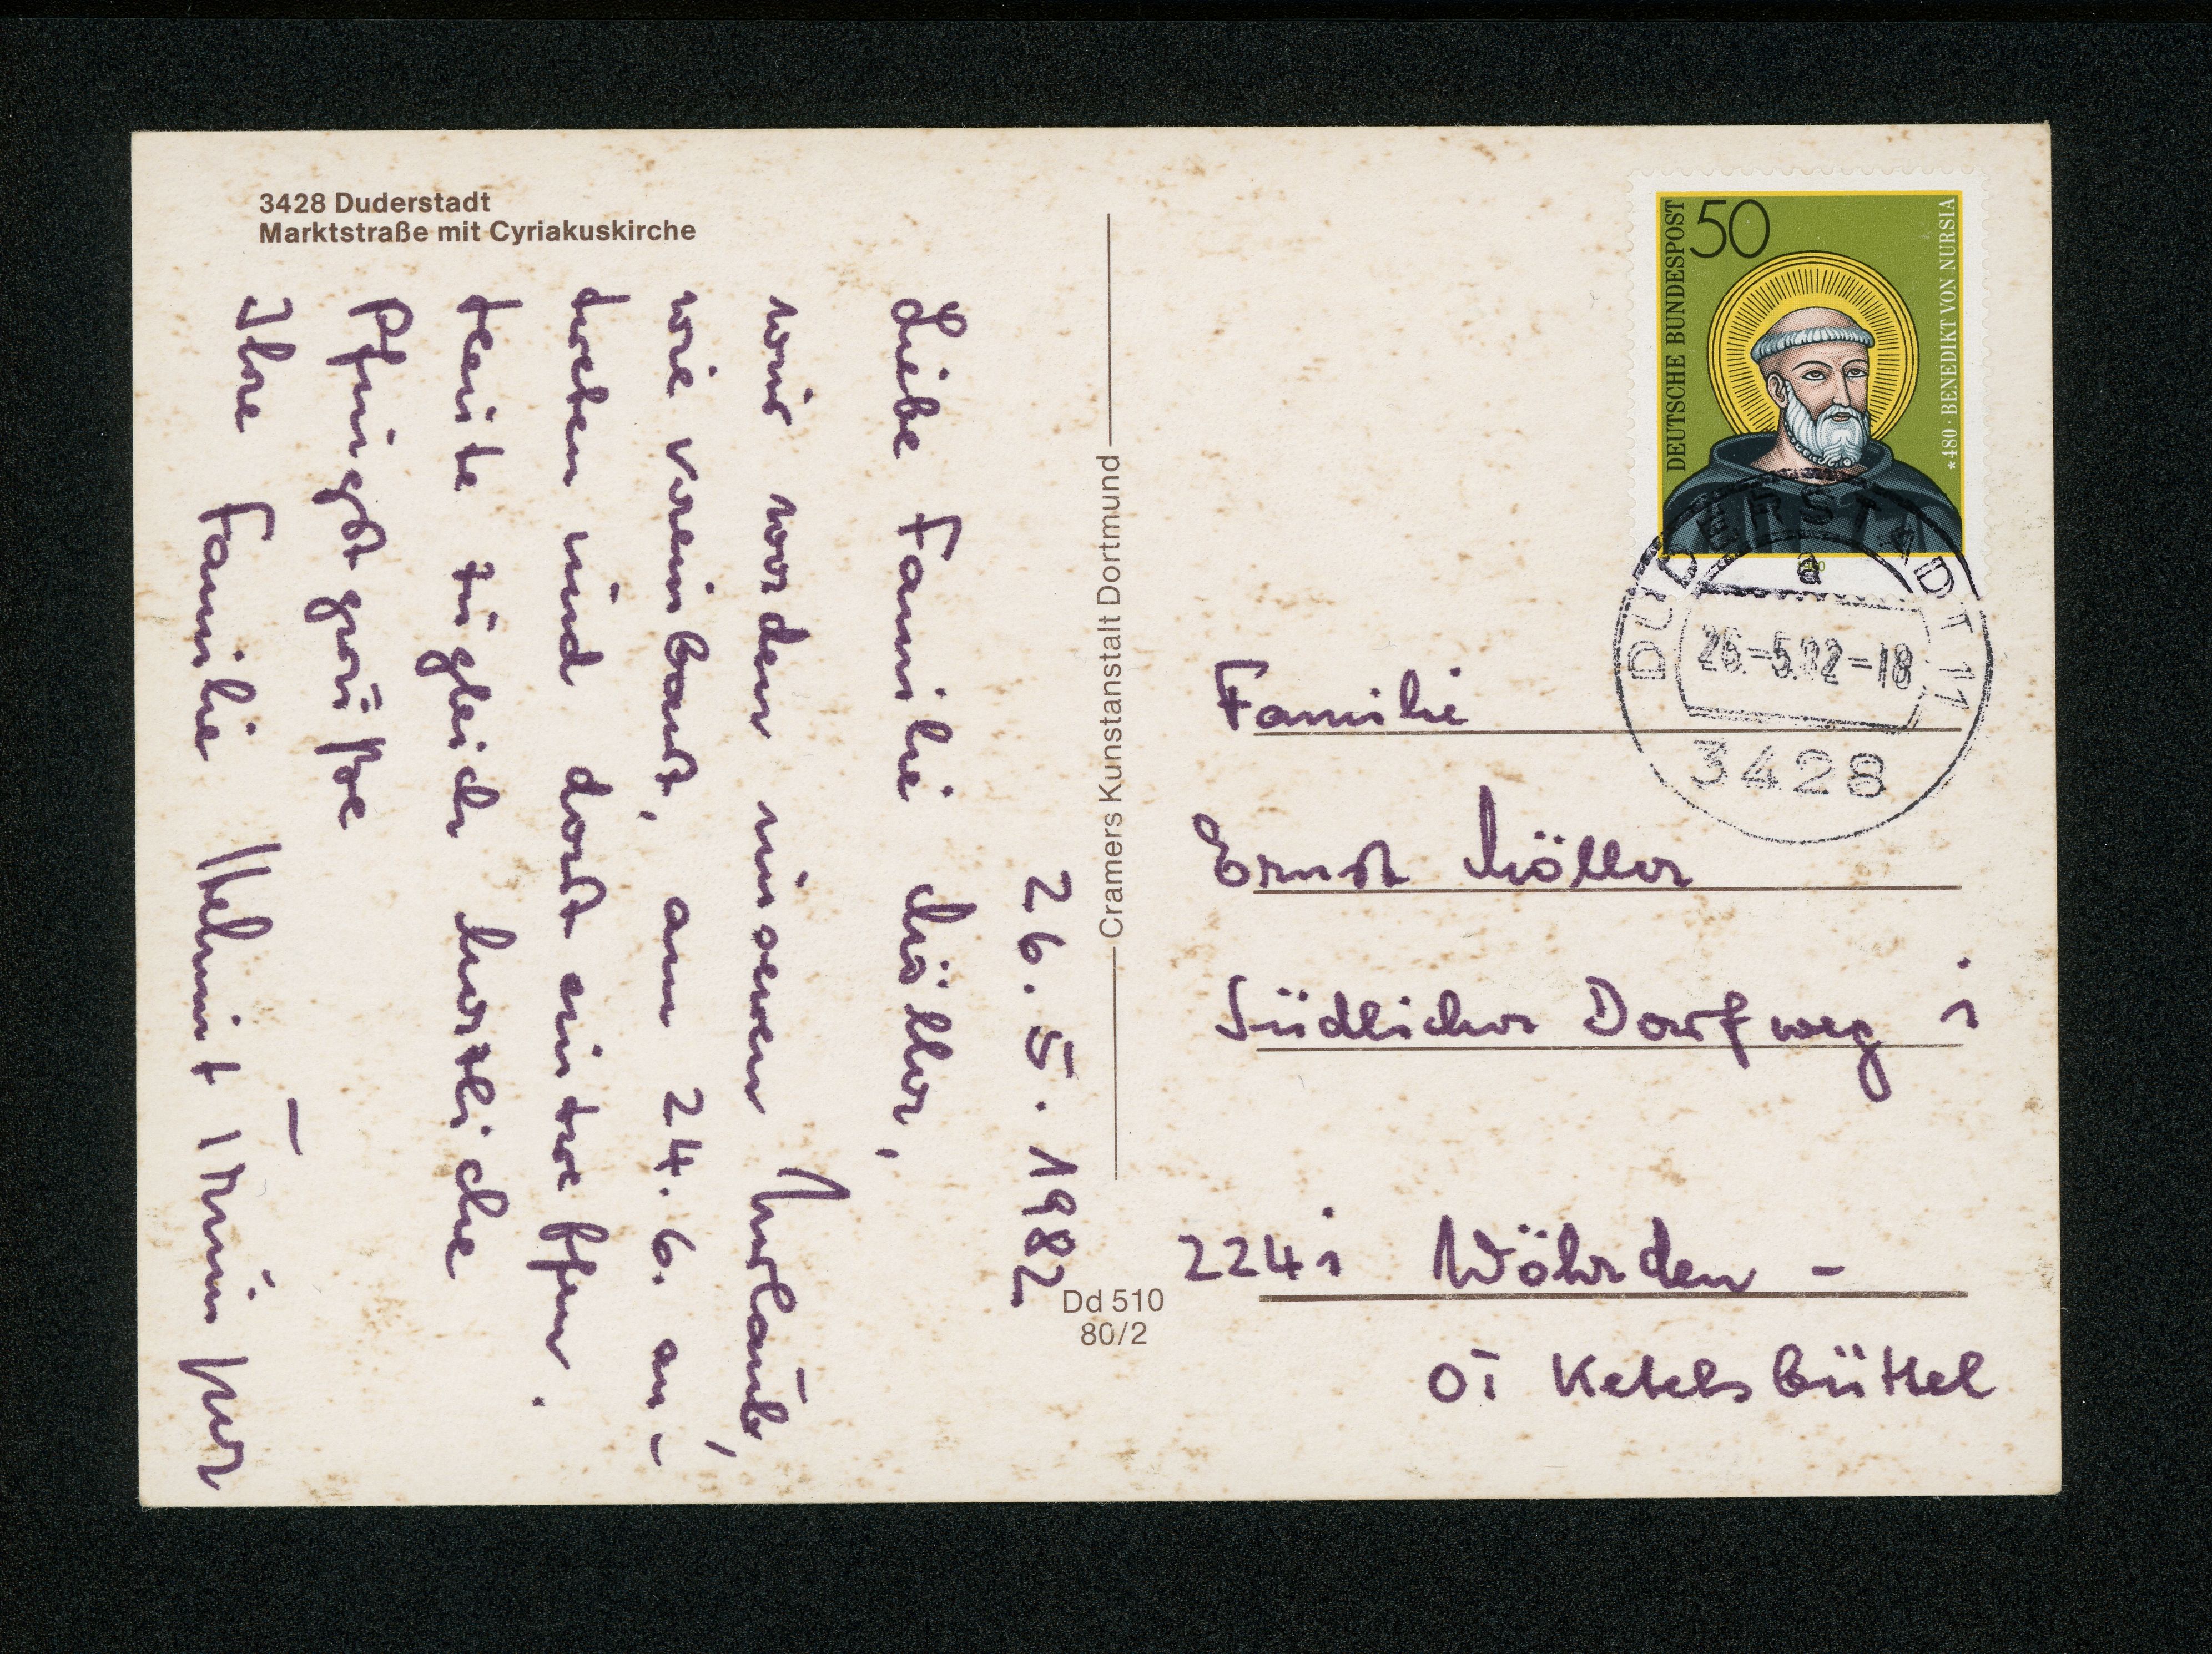 3428 Duderstadt
Marktstraße mit Cyriakuskirche
26.5.1982
Liebe Familie Möller,
wir werden unseren Urlaub,
wie vereinbart, am 24.6. an-
treten und dort eintreffen.
Heute zugleich herzliche
Pfingstgrüße
Ihre Familie Helmut
Cramers Kunstanstalt Dortmund
Dd 510
80/2
DEUTSCHE BUNDESPOST
50
*480·BENEDIKT VON NURSIA
DUDERSTADT 11
a
26.-5.82-18
3428
Familie
Ernst Möller
Südlicher Dorfweg 1
2241 Wöhrden -
OT Ketelsbüttel